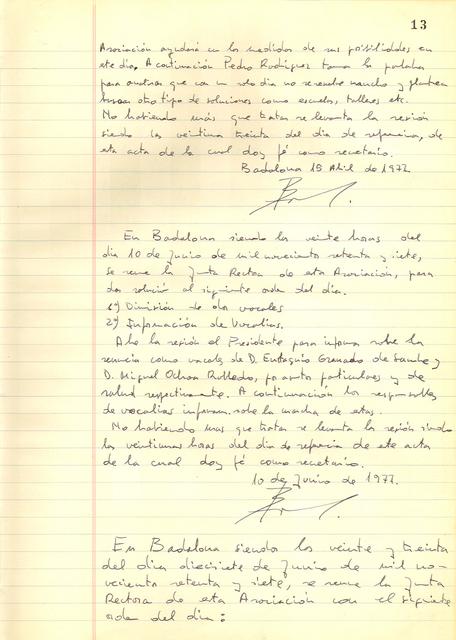 13
Asociación ayudará en las medidas de sus posibilidades en
este día. A continuación Pedro Rodríguez toma la palabra
para que con un solo día no se resuelve mucho y
otro tipo de soluciones como escuelas, talleres etc.
No habiendo más que tratar se levanta la sesión
siendo las veintiuna treinta del día de referencia, de
esta acta de la cual doy fé como secretario.
Badalona 15 Abril de 1977
En Badalona siendo las veinte horas del
día 10 de Junio de mil novecientos setenta y siete,
se reune la Junta Rectora de esta Asociación, para
dar solució al siguiente orden del día.
1º) Dimisión de dos vocales
2º) Información de Vocalias.
Abre la sesión el Presidente para informar sobre la
renuncia como vocales de D. Eutaquio Granado de y
D. Miguel Ochoa Rolledo, por asuntos particulares y de
salud respectivamente. A continuación los responsables
de vocalias informan sobre la marcha de estas.
No habiendo mas que tratar se levanta la sesión siendo
las veintiuna horas del día de referencia de este acta
de la cual doy fé como secretario.
10 de Junio de 1977.
En Badalona siendo las veinte y treinta
del día diecisiete de Junio de mil no-
vecientos setenta y siete, se reune la Junta
Rectora de esta Asociación con el siguiente
orden del día: